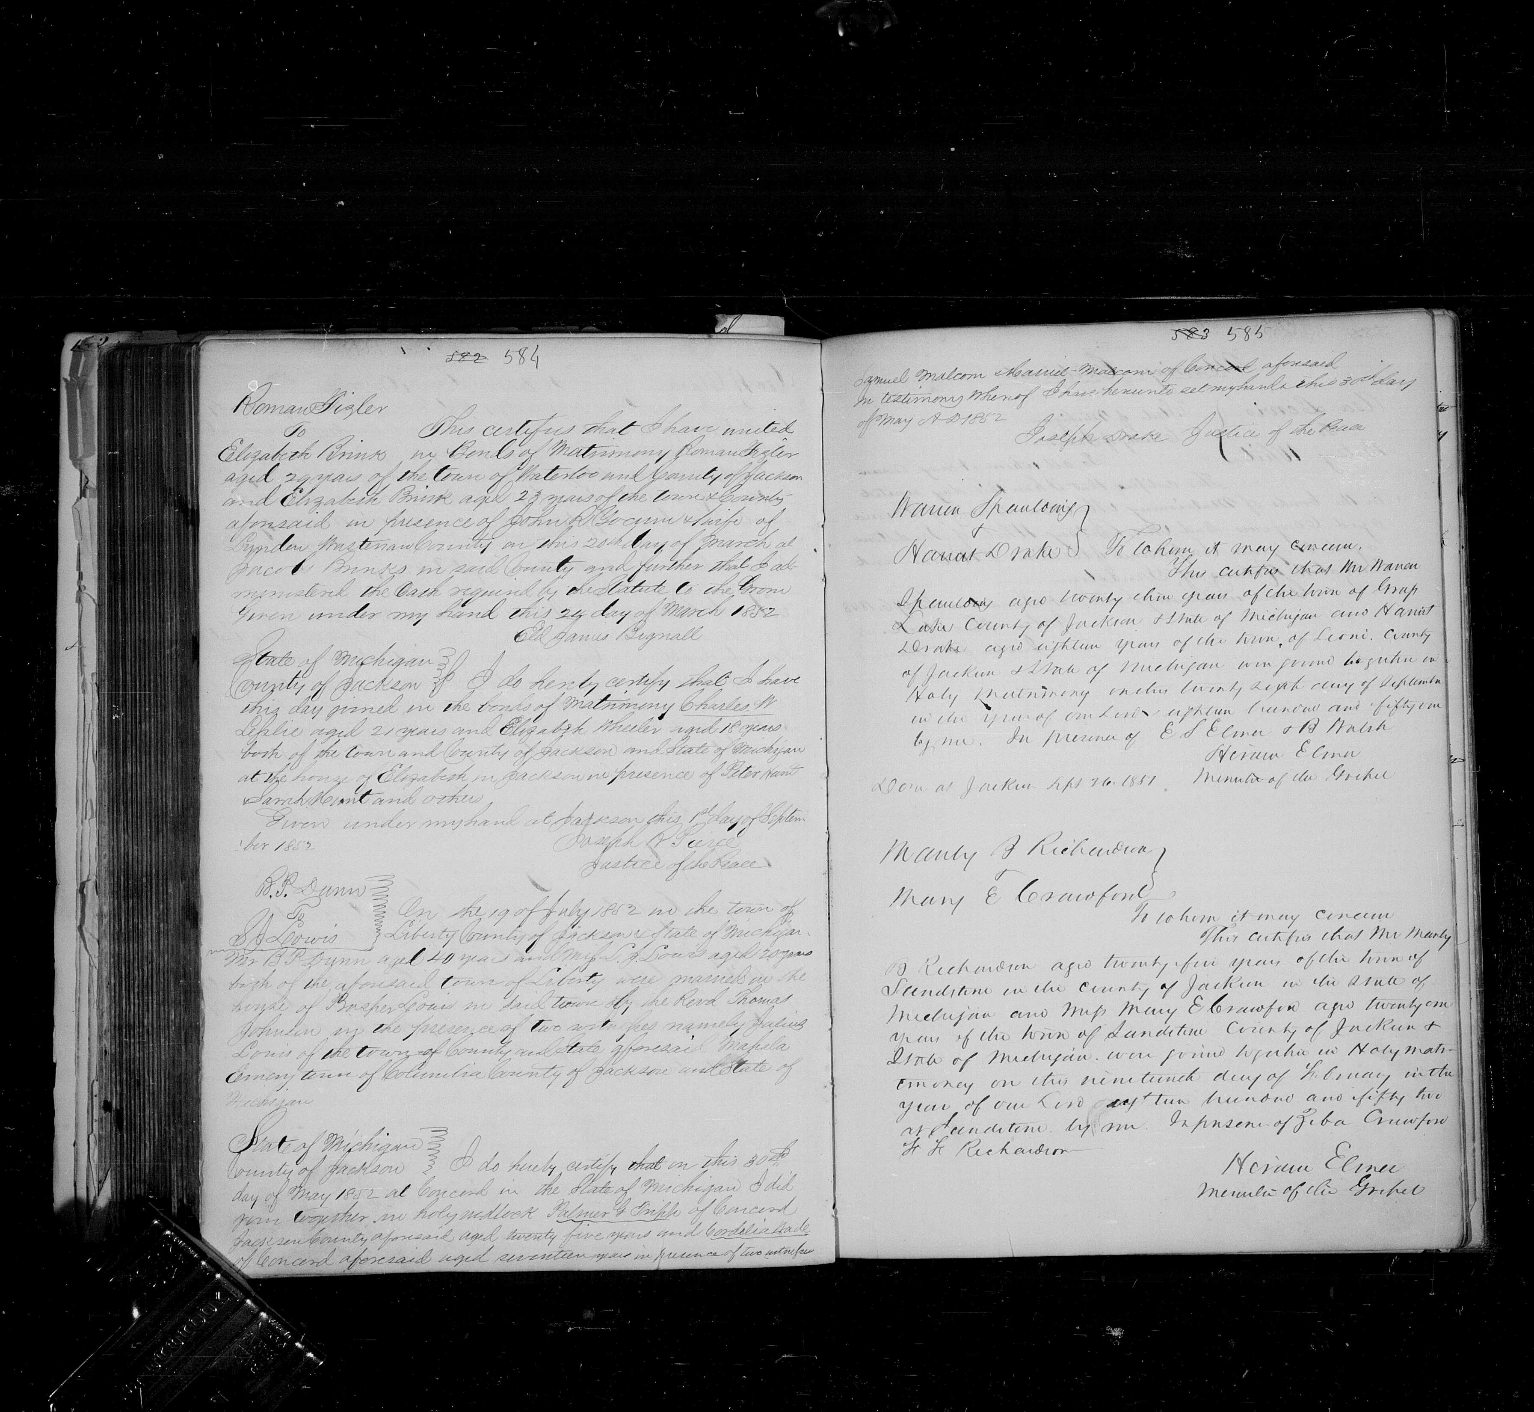 582 584
Roman Figler
To This certifies that I have united
Elizabeth Brink in Bonds of Matrimony Roman Figler
aged 29 years of the town of Waterloo and County of Jackson
and Elizabeth Brink aged 23 years of the town & County
aforesaid in presence of John & wife of
Lyndon Washtenaw County on this 20th day of March at
Jacob Brinks in said County and further that I ad-
ministered the Oath required by the Statute to the Groom
Given under my hand this 24 day of March 1852
Eld James Bignall
State of Michigan
County of Jackson I do hereby certify that I have
this day joined in the bonds of Matrimony Charles W
Leslie aged 21 years and Elizabeth Wheeler aged 18 years
both of the town and County of Jackson and State of Michigan
at the house of Elizabeth in Jackson in presence of Peter Hunt
& Sarah Hunt and others
Given under my hand at Jackson this 1st day of Septem-
ber 1852 Joseph R Pierce
Justice of the Peace
B.P. Dynn
To On the 19 of July 1852 in the town of
Lewis Liberty County of Jackson & State of Michigan
Mr B P Dynn aged 40 years and Miss aged 20 years
both of the aforesaid town of Liberty were married in the
house of Lewis in said town by the Revd Thomas
Johnson in the presence of two witnesses namely Julius
Lewis of the town of County and State aforesaid
Emery town of Columbia County of Jackson and State of
Michigan
State of Michigan
County of Jackson I do hereby certify that on this 30th
day of May 1852 at Concord in the State of Michigan I did
join together in holy wedlock Palmer G of Concord
Jackson County aforesaid aged twenty five years and Cordelia
of Concord aforesaid aged seventeen years in presence of two witnesses
583 585
Samuel Malcom Malcom of Concord aforesaid
In testimony whereof I have hereunto set my hand this 30th day
of May A D 1852
Joseph Drake Justice of the Peace
Warren Spaulding
To
Harriet Drake To whom it may concern.
This certifies that Mr Warren
Spaulding aged twenty three years of the town of Grass
Lake County of Jackson & State of Michigan and Harriet
Drake aged eighteen years of the town of Leoni. County
of Jackson & State of Michigan were joined together in
Holy Matrimony on this twenty sixth day of September
in the year of our Lord eighteen hundred and fifty one
by me. In presence of E S Elmer & B Walsh
Hiram Elmer
Done at Jackson Sept 26 1851. Minister of the Gospel
Manly B Richardson
To
Mary E Crawford
To whom it may concern
This certifies that Mr Manly
B Richardson aged twenty five years of the town of
Sandstone in the county of Jackson in the State of
Michigan and Miss Mary E Crawford aged twenty one
years of the town of Sandstone County of Jackson &
State of Michigan. were joined together in Holy Matri-
mony on this nineteenth day of February in the
year of our Lord eighteen hundred and fifty two
at Sandstone by me. In presence of Ziba Crawford
Richardson
Hiram Elmer
Minister of the Gospel